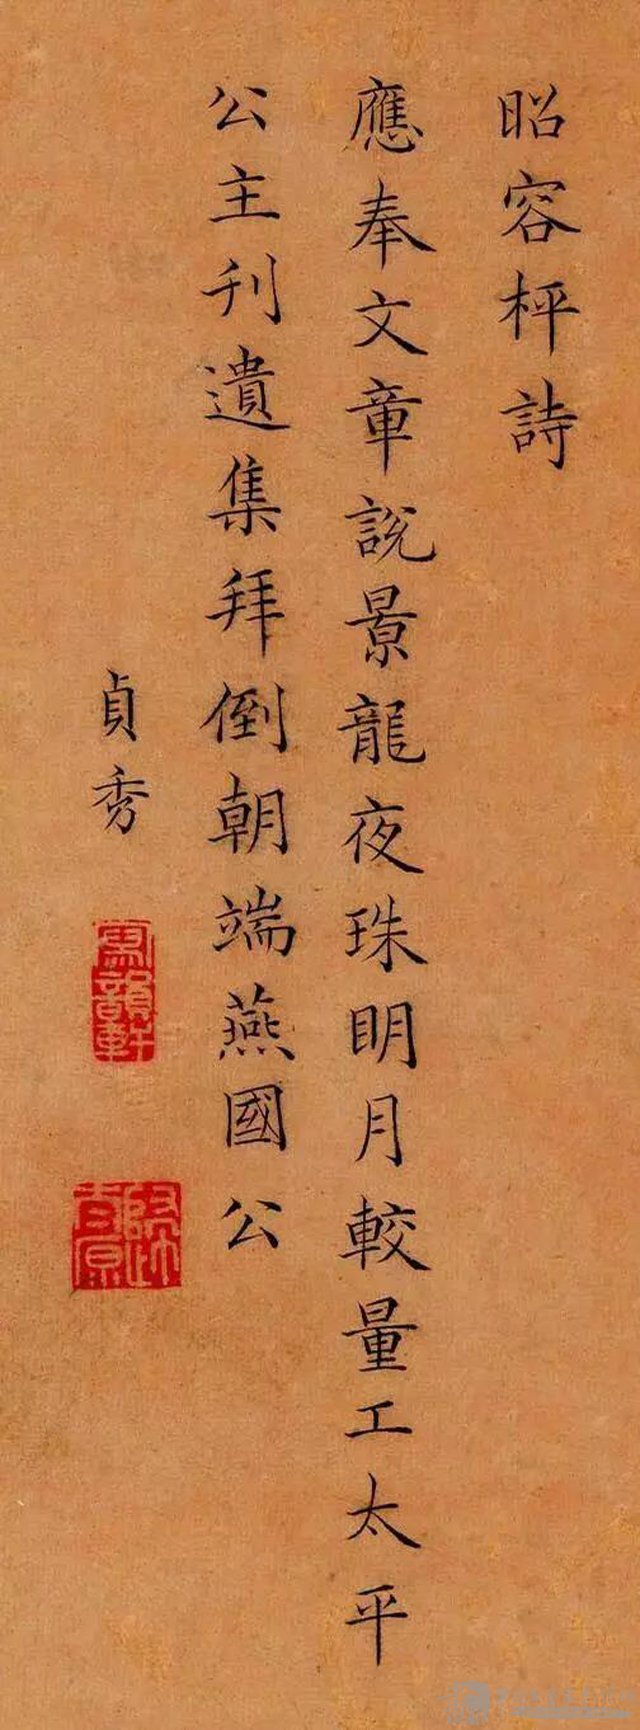 昭容枰詩
應奉文章說景龍夜珠眀月較量工太平
公主刋遺集拜倒朝端燕國公
貞秀
寫韻軒